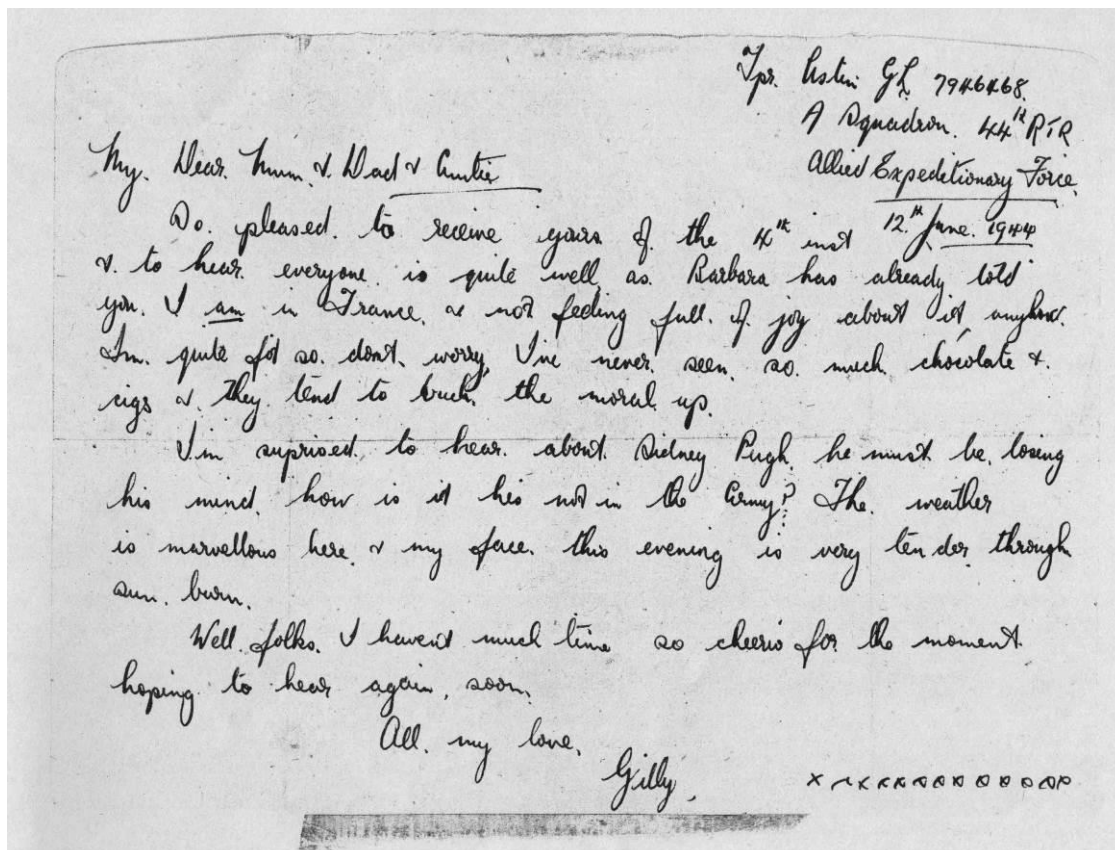 Tpr. Astin GL 7946468.
A Squadron. 44th RTR
Allied Expeditionary Force.
12.th June. 1944
My. Dear. Mum. & Dad & Auntie
So. pleased. to receive yours of. the 4th inst
& to hear. everyone. is quite well, as. Barbara has already told
you. I am in France. & not feeling full. of. joy about it anyhow.
I'm. quite fit so. dont. worry, I've never. seen. so. much. chocolate &.
cigs & they tend to buck. the moral. up.
I'm suprised. to hear. about. Sidney Pugh. he must. be. losing
his mind. how is it he's not in the Army? The. weather
is marvellous here. & my face. this evening is very ten der. through.
sun. burn.
Well. folks. I haven't much time so cheerio for. the moment.
hoping. to hear again. soon.
All. my love.
Gilly.
x x x x x x x x x x x x